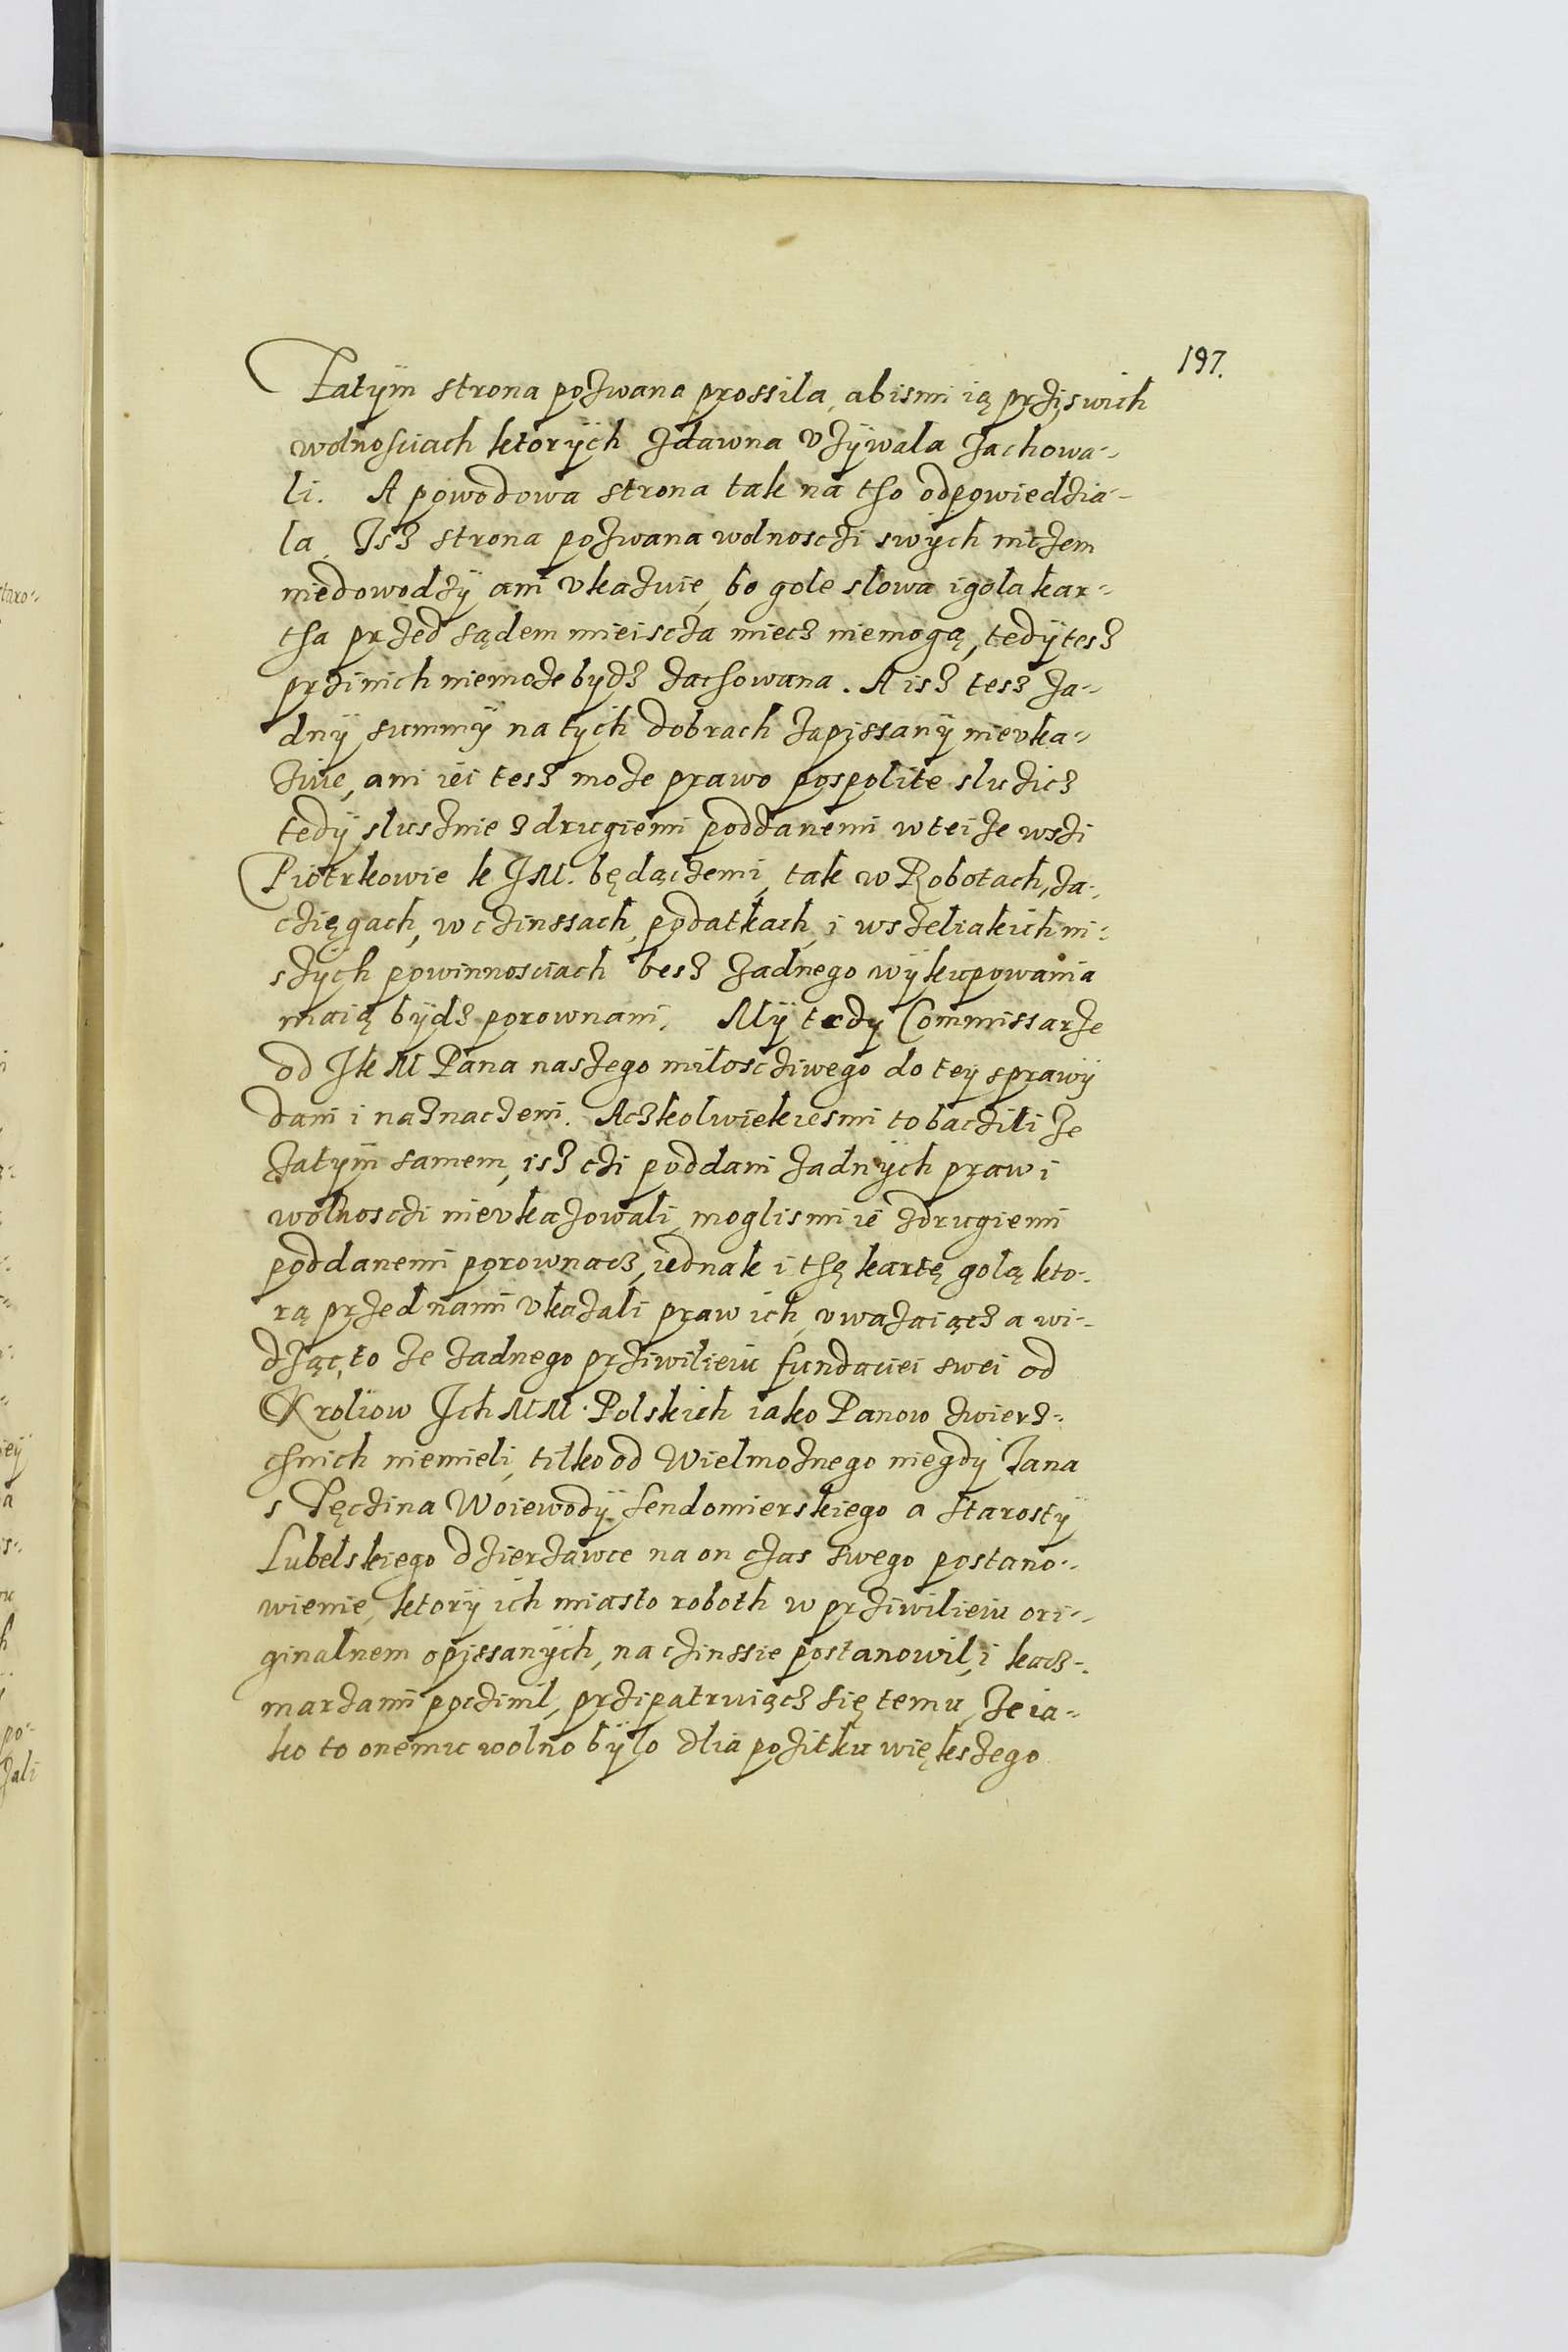 197.
Zatÿm strona pozwana prossila, abismi ią przi swich
wolnosciach ktorÿch zdawna vzÿwala zachowa-
li. A powodowa strona tak na tho odpowiedzia-
la. Isz strona pozwana wolnosczi swÿch niczem
niedowodzÿ ani vkazuie, bo gole slowa i gola kar-
tha przed sądem mieiscza miecz niemogą, tedÿ tesz
przi nich niemoze bydz zachowana. A isz tesz za-
dnÿ summÿ na tÿch dobrach zapissanÿ nievka-
zuie, ani iei tesz moze prawo pospolite sluzicz
tedÿ slusznie z drugiemi poddanemi w tei ze wszi
Piotrkowie k J M. będączemi, tak w Robotach, za-
czięgach, w czinssach, podatkach, i wszeliakich in-
szÿch powinnosciach besz zadnego wÿkupowania
maią bÿdz porownani. Mÿ tedy Commissarze
od J k M Pana naszego miłoscziwego do tey sprawÿ
dani i naznaczeni. Aczkolwiekiesmi to baczili ze
zatÿm samem, isz czi poddani zadnÿch praw i
wolnosczi nievkazowali, moglismi ie zdrugiemi
poddanemi porownacz, iednak i thę kartę golą kto-
rą przed nami vkazali praw ich, vwazaiącz a wi-
dząc, to ze zadnego prziwilieiu fundaciei swei od
Kroliow Jch M M. Polskich iako Panow zwierz-
chnich niemieli, tilko od Wielmoznego niegdÿ Jana
s Tęczina Woiewodÿ Sendomierskiego a Starostÿ
Lubelskiego dzierzawce na on czas swego postano-
wienie, ktorÿ ich miasto roboth w prziwilieiu ori-
ginalnem opissanÿch, na czinssie postanowil, i kacz-
marzami poczinil, przipatruiącz się temu, ze ia-
ko to onemu wolno bÿlo dlia pozitku większego